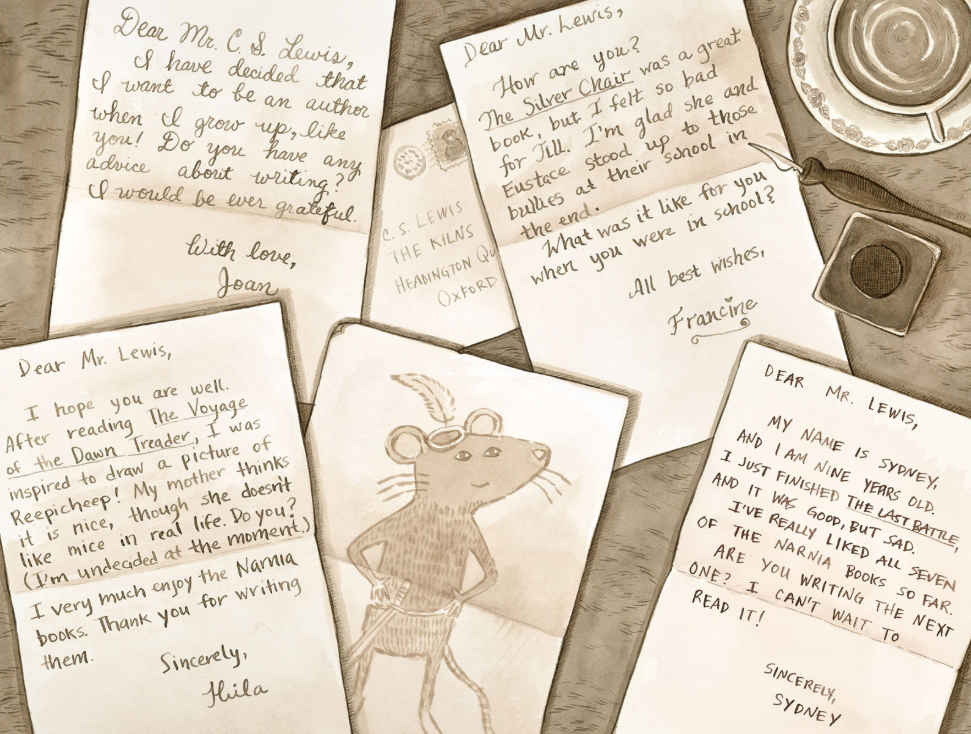 Dear Mr. C. S. Lewis,
I have decided that
I want to be an author
when I grow up, like
you! Do you have any
advice about writing?
I would be ever grateful.
With love,
Joan
C. S. LEWIS
THE KILNS
HEADINGTON QU
OXFORD
Dear Mr. Lewis,
How are you?
The Silver Chair was a great
book, but I felt so bad
for Jill. I'm glad she and
Eustace stood up to those
bullies at their school in
the end.
What was it like for you
when you were in school?
All best wishes,
Francine
Dear Mr. Lewis,
I hope you are well.
After reading The Voyage
of the Dawn Treader, I was
inspired to draw a picture of
Reepicheep! My mother thinks
it is nice, though she doesn't
like mice in real life. Do you?
(I'm undecided at the moment.)
I very much enjoy the Narnia
books. Thank you for writing
them.
Sincerely,
Hila
DEAR MR. LEWIS,
MY NAME IS SYDNEY,
AND I AM NINE YEARS OLD.
I JUST FINISHED THE LAST BATTLE,
AND IT WAS GOOD, BUT SAD.
I'VE REALLY LIKED ALL SEVEN
OF THE NARNIA BOOKS SO FAR.
ARE YOU WRITING THE NEXT
ONE? I CAN'T WAIT TO
READ IT!
SINCERELY,
SYDNEY